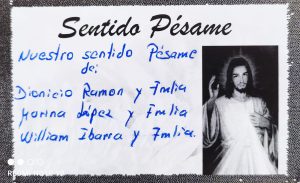 Sentido Pésame
Nuestro sentido Pésame
de:
Dionicio Ramon y Fmlia
Marina López y Fmlia
William Ibarra y Fmlia.